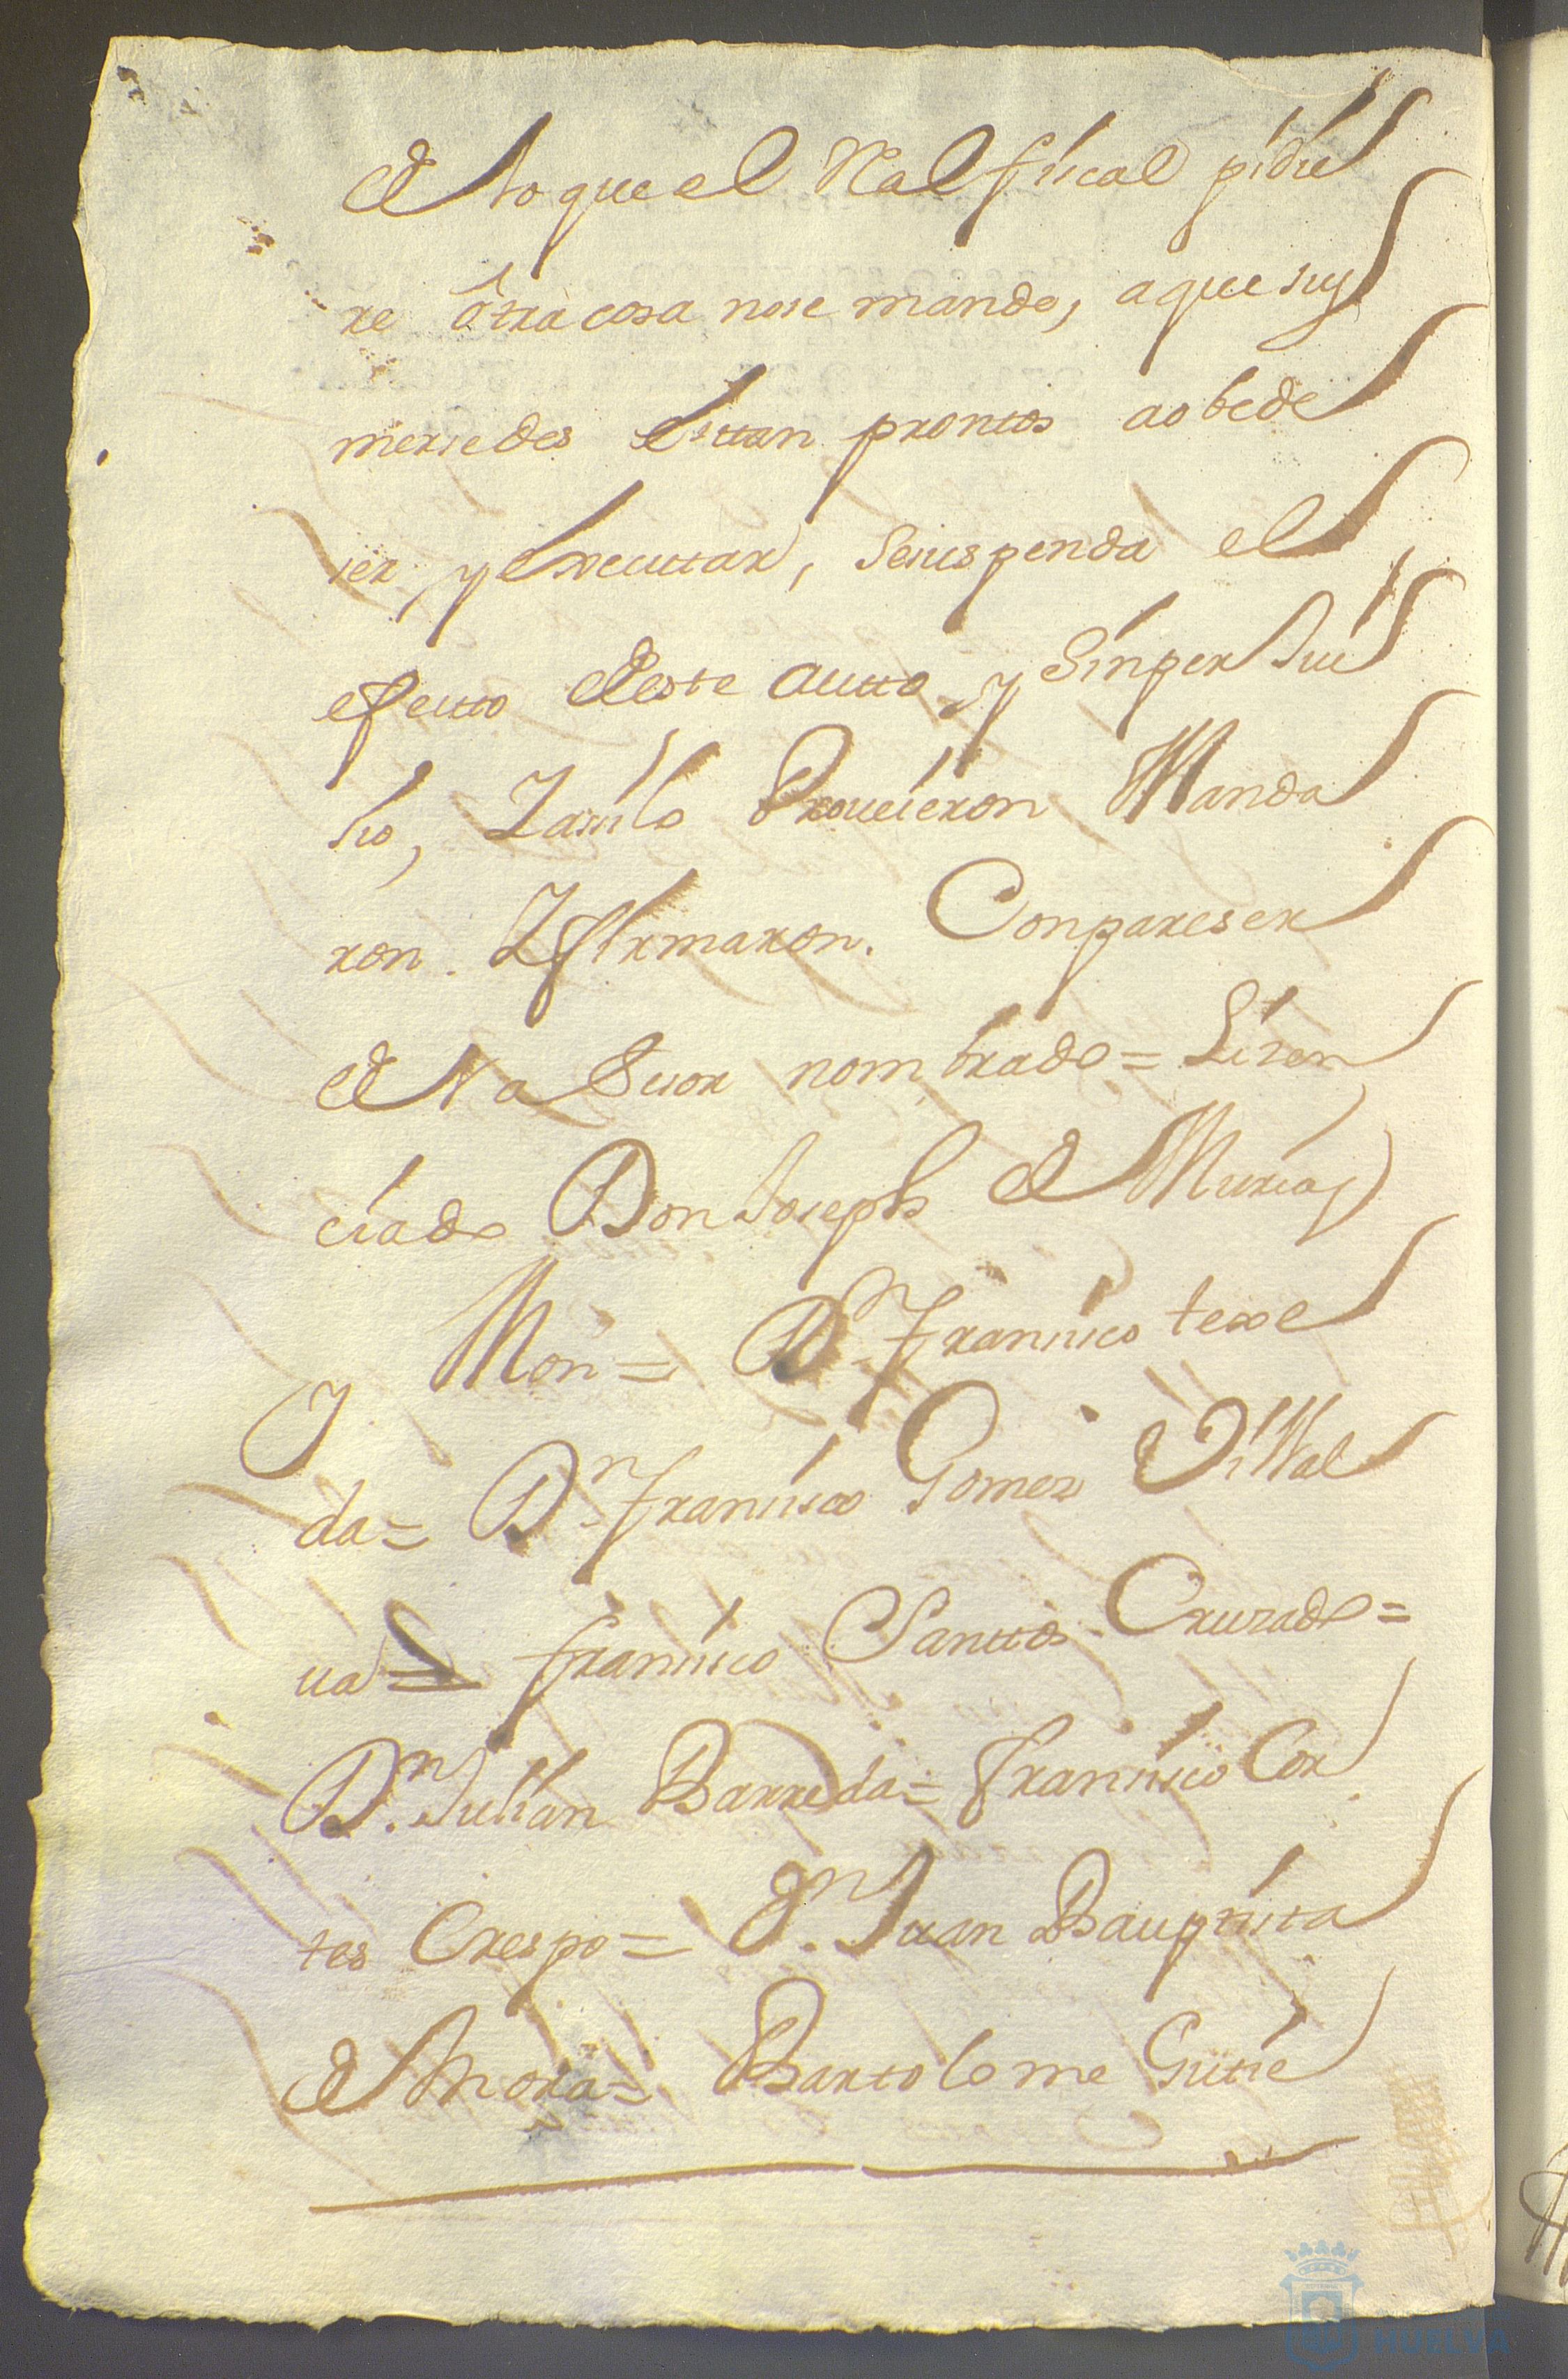 de lo que el Real fiscal pidie
re ôtra cosa nose mande, aque sus
mersedes estan promtos aobede
ser, y executar, Sesuspenda el
efecto deeste autto, y Sinperjui
sio, Yasilo Proueieron Manda
ron. Yfirmaron. Conpareser
del asesor nombrado = Lizen
ciado Don Joseph de Murias
y Mon = Dn. Francisco texe
da = Dn. Francisco Gomez Villal
ua = francisco Santtos Cruzado =
Dn. Julian Barreda = francisco Cor
tes Crespo = Dn. Juan Bauptista
de Mora = Bartolome Gutie
HUELVA